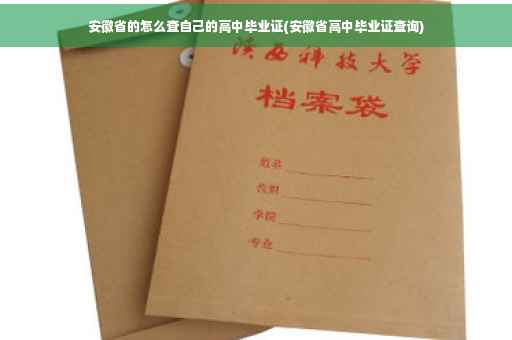 安徽省的怎么查自己的高中毕业证(安徽省高中毕业证查询)
陕西科技大学
档案袋
姓名
学院
专业